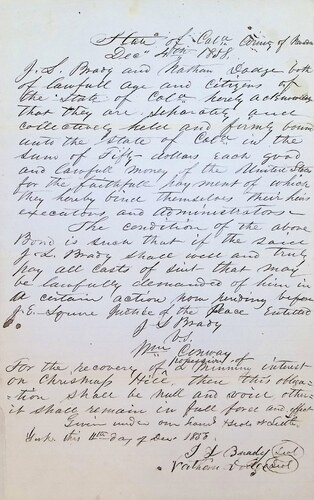 State of Cal^a County of Butte
Dec^r 4th 1858.
J. S. Brady and Nathan Dodge both
of lawfull age and citizens of
the State of Cal^a hereby acknowledg
that they are Separately and
collectively held and firmly bound
unto the State of Cal^a in the
sum of Fifty dollars Each good
and lawfull money of the United States
for the faithfull payment of which
they hereby bind themselves their heirs
executors and Administrators
The condition of the above
Bond is such that if the said
J. S. Brady shall well and truly
pay all costs of suit that may
be lawfully demanded of him in
a certain action now pending before
J. E. Squire Justice of the Peace Entitled
J S Brady
vs.
Wm Conway
For the recovery of possession of a Mining interest
on Chrismass Hill, then this obliga-
tion shall be null and void other-
it shall remain in full force and effect
Given under our hand &
this 4th day of Dec 1858.
J. S. Brady Seal
Nathan Dodge Seal